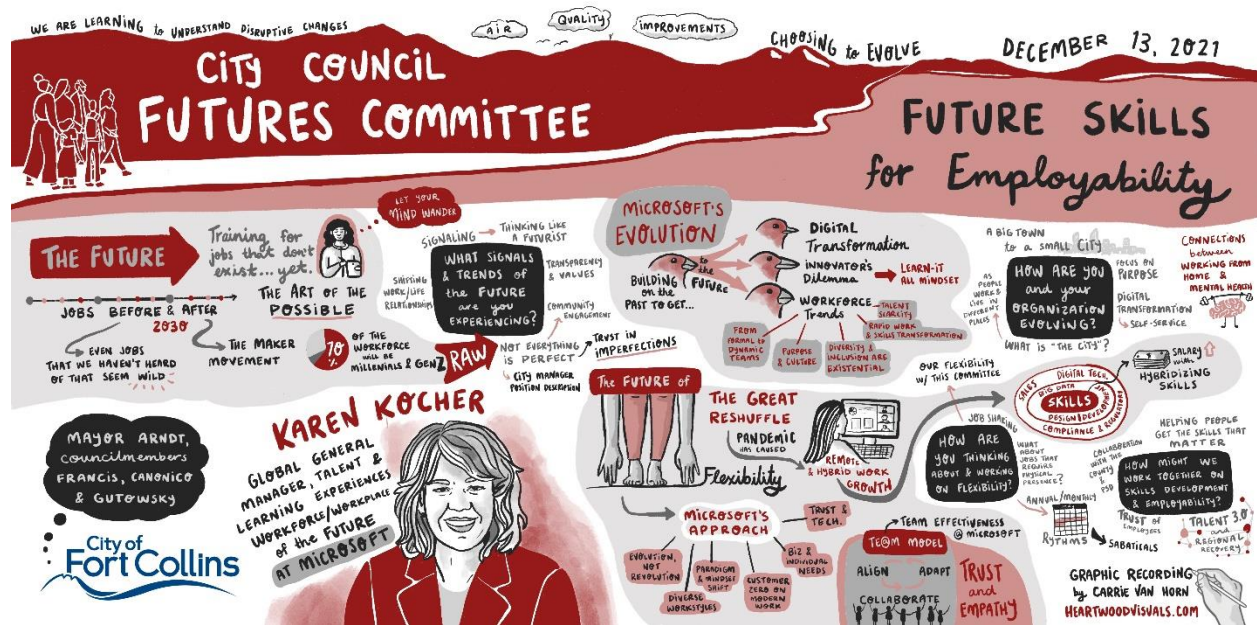 WE ARE LEARNING to UNDERSTAND DISRUPTIVE CHANGES
AIR
QUALITY
IMPROVEMENTS
CHOOSING to EVOLVE
DECEMBER 13, 2021
CITY COUNCIL
FUTURES COMMITTEE
FUTURE SKILLS
for Employability
THE FUTURE
Training for
jobs that don't
exist... yet.
THE ART OF THE
POSSIBLE
LET YOUR
MIND WANDER
JOBS BEFORE & AFTER
2030
EVEN JOBS
THAT WE HAVEN'T HEARD
OF THAT SEEM WILD
THE MAKER
MOVEMENT
70
%
OF THE
WORKFORCE
will be
MILLENIALS & GEN Z
SIGNALING
THINKING LIKE
A FUTURIST
WHAT SIGNALS
& TRENDS of
the FUTURE
are you
EXPERIENCING?
SHIFTING
WORK/LIFE
RELATIONSHIPS
TRANSPARENCY
& VALUES
COMMUNITY
ENGAGEMENT
RAW
NOT EVERYTHING
IS PERFECT
TRUST IN
IMPERFECTIONS
CITY MANAGER
POSITION DESCRIPTION
MICROSOFT'S
EVOLUTION
BUILDING
on the
PAST TO GET...
to
the
FUTURE
DIGITAL
Transformation
INNOVATOR'S
DILEMMA
LEARN-IT
ALL MINDSET
WORKFORCE
Trends
TALENT
SCARCITY
RAPID WORK
& SKILLS TRANSFORMATION
FROM
FORMAL to
DYNAMIC
TEAMS
PURPOSE
& CULTURE
DIVERSITY &
INCLUSION ARE
EXISTENTIAL
A BIG TOWN
to a SMALL CITY
AS
PEOPLE
WORK &
LIVE IN
DIFFERENT
PLACES
HOW ARE YOU
and your
ORGANIZATION
EVOLVING?
WHAT IS "THE CITY"?
FOCUS ON
PURPOSE
DIGITAL
TRANSFORMATION
SELF-SERVICE
CONNECTIONS
between
WORKING FROM
HOME &
MENTAL HEALTH
MAYOR ARNDT,
councilmembers
FRANCIS, CANONICO
& GUTOWSKY
City of
Fort Collins
KAREN KOCHER
GLOBAL GENERAL
MANAGER, TALENT &
LEARNING EXPERIENCES
WORKFORCE/WORKPLACE
of the FUTURE
AT MICROSOFT
The FUTURE of
THE GREAT
RESHUFFLE
PANDEMIC
HAS CAUSED
Flexibility
REMOTE
& HYBRID WORK
GROWTH
MICROSOFT'S
APPROACH
TRUST &
TECH.
EVOLUTION,
NOT
REVOLUTION
DIVERSE
WORKSTYLES
PARADIGM
& MINDSET
SHIFT
CUSTOMER
ZERO ON
MODERN
WORK
BIZ &
INDIVIDUAL
NEEDS
TE@M MODEL
TEAM EFFECTIVENESS
@ MICROSOFT
ALIGN
ADAPT
COLLABORATE
TRUST
and
EMPATHY
OUR FLEXIBILITY
W/ THIS COMMITTEE
JOB SHARING
HOW ARE
YOU THINKING
ABOUT & WORKING
ON FLEXIBILITY?
WHAT
ABOUT
JOBS THAT
REQUIRE
PHYSICAL
PRESENCE?
ANNUAL/MONTHLY
RYTHMS
SABATICALS
SALES
DIGITAL TECH.
BIG DATA
SKILLS
DESIGN
DEVELOPMENT
COMPLIANCE & REGULATORY
SALARY
with
HYBRIDIZING
SKILLS
HELPING PEOPLE
GET THE SKILLS THAT
MATTER
COLLABORATION
WITH THE
COUNTY
& PSD
HOW MIGHT WE
WORK TOGETHER ON
SKILLS DEVELOPMENT
& EMPLOYABILITY?
TRUST of
EMPLOYEES
TALENT 3.0
and
REGIONAL
RECOVERY
GRAPHIC RECORDING
by CARRIE VAN HORN
HEARTWOODVISUALS.COM